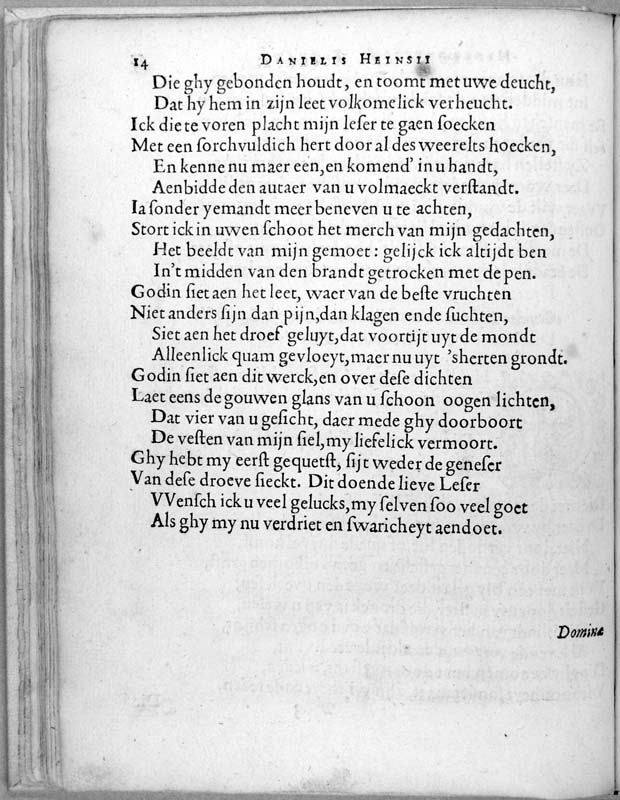 14 DANIELIS HEINSII
Die ghy gebonden houdt, en toomt met uwe deucht,
Dat hy hem in zijn leet volkomelick verheucht.
Ick die te voren placht mijn leſer te gaen ſoecken
Met een ſorchvuldich hert door al des weerelts hoecken,
En kenne nu maer een, en komend' in u handt,
Aenbidde den autaer van u volmaeckt verſtandt.
Ia ſonder yemandt meer beneven u te achten,
Stort ick in uwen ſchoot het merch van mijn gedachten,
Het beeldt van mijn gemoet: gelijck ick altijdt ben
In't midden van den brandt getrocken met de pen.
Godin ſiet aen het leet, waer van de beſte vruchten
Niet anders ſijn dan pijn, dan klagen ende ſuchten,
Siet aen het droef geluyt, dat voortijt uyt de mondt
Alleenlick quam gevloeyt, maer nu uyt 'sherten grondt.
Godin ſiet aen dit werck, en over deſe dichten
Laet eens de gouwen glans van u ſchoon oogen lichten,
Dat vier van u geſicht, daer mede ghy doorboort
De veſten van mijn ſiel, my liefelick vermoort.
Ghy hebt my eerſt gequetſt, ſijt weder de geneſer
Van deſe droeve ſieckt. Dit doende lieve Leſer
VVenſch ick u veel gelucks, my ſelven ſoo veel goet
Als ghy my nu verdriet en ſwaricheyt aendoet.
Dominæ